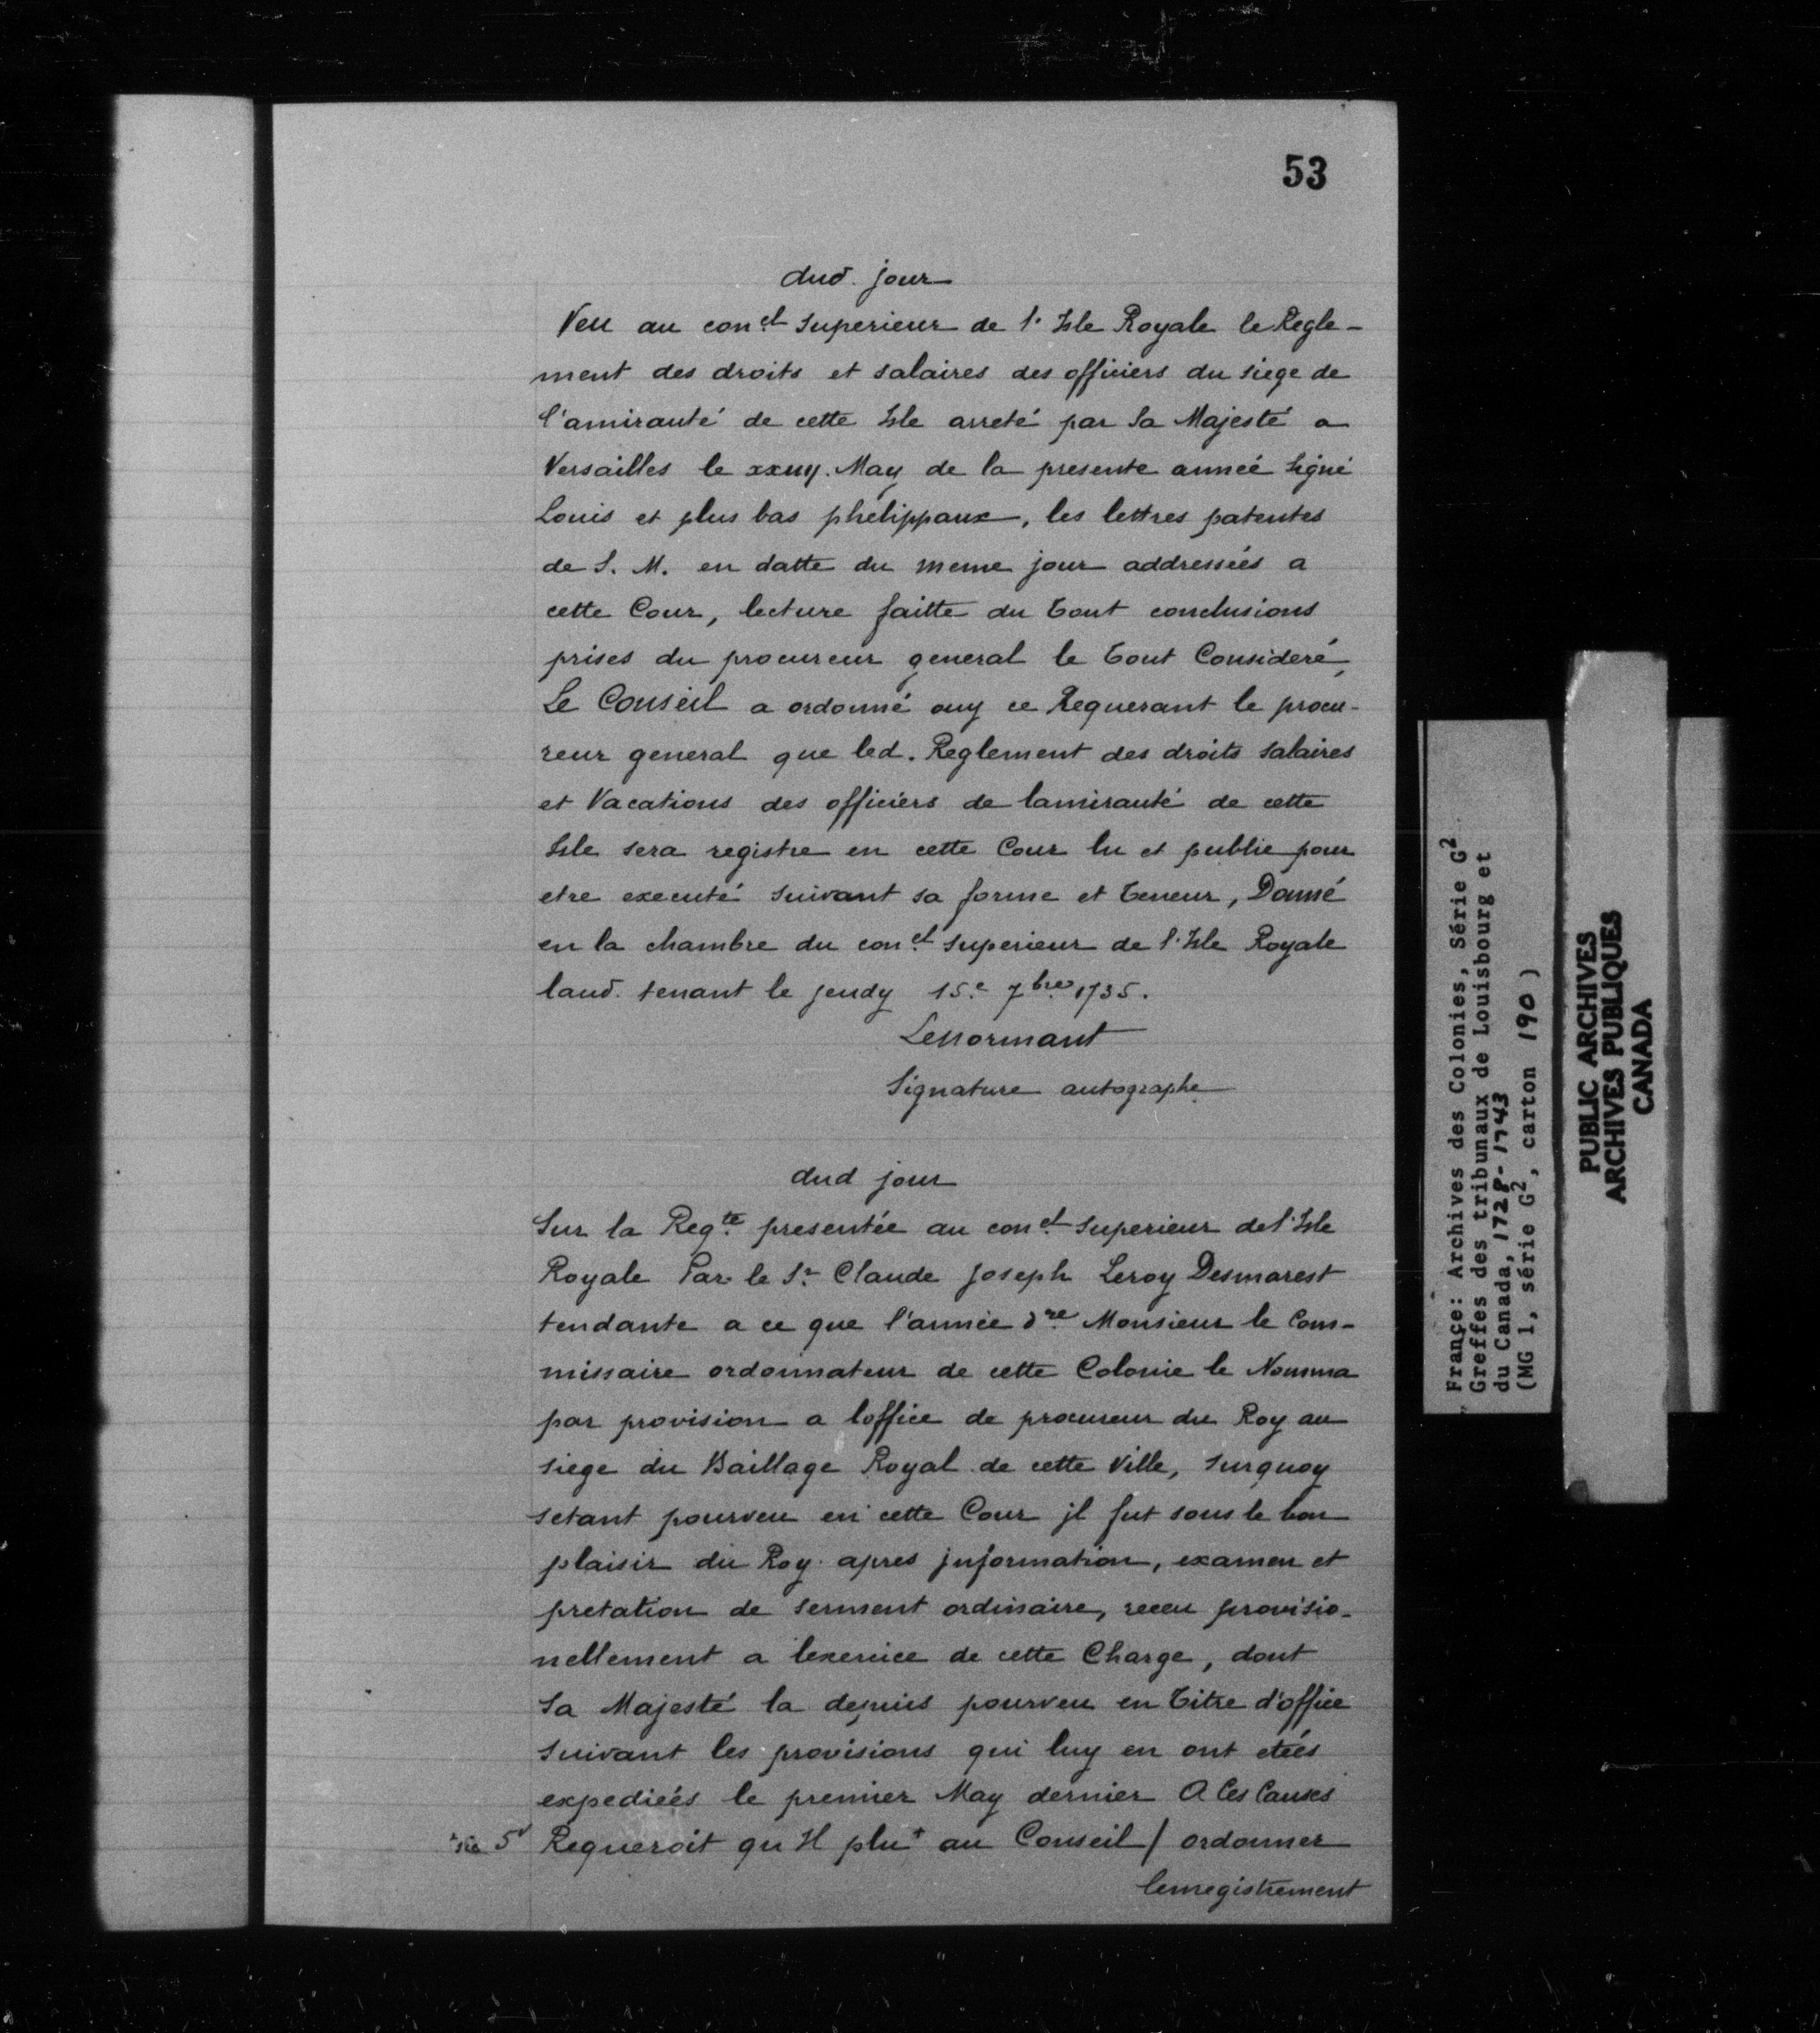 53
dud. jour
Veu au con.el Superieur de l. Isle Royale le Regle-
ment des droits et salaires des officiers du siege de
l'amirauté de cette Isle arreté par Sa Majesté a
Versailles le xxuy. May de la presente anneé Signé
Louis et plus bas phélippaux, les lettres patentes
de S. M. en datte du meme jour addresseés a
cette Cour, lecture faitte du Tout conclusions
prises du procureur general le Tout Consideré,
Le Conseil a ordonné ouy ce Requerant le procu-
reur general que led. Reglement des droits salaires
et Vacations des officiers de lamirauté de cette
Isle sera registre en cette Cour lu et publie pour
etre executé suivant sa forme et Teneur, Donné
en la chambre du con.el superieur de l'Isle Royale
laud. tenant le jeudy 15.e 7bre 1735.
Lenormant
Signature autographe
dud jour
Sur la Reqte presentée au con.el Superieur de l'Isle
Royale Par le Sr Claude Joseph Leroy Desmarest
tendante a ce que l'année dre Monsieur le Com-
missaire ordonnateur de cette Colonie le Nomma
par provision a loffice de procureur du Roy au
siege du Baillage Royal de cette Ville, surquoy
setant pourveu en cette Cour jl fut sous le bon
plaisir du Roy apres jnformation, examen et
pretation de serment ordinaire, receu provisio-
nellement a lexercice de cette Charge, dont
Sa Majesté la depuis pourveu en Titre d'office
suivant les provisions qui luy en ont eteés
expedieés le premier May dernier A Ces Causes
sic 5 Requeroit qu Il plut au Conseil / ordonner
lenregistrement
France: Archives des Colonies, Série G2
Greffes des tribunaux de Louisbourg et
du Canada, 1728-1743
(MG 1, série G2, carton 190)
PUBLIC ARCHIVES
ARCHIVES PUBLIQUES
CANADA